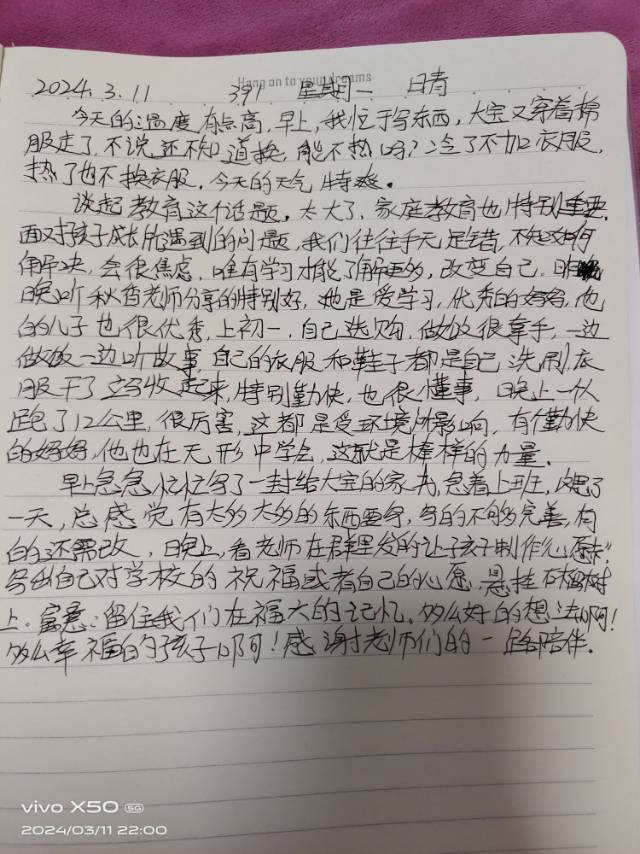 Hang on to your dreams
2024.3.11 391 星期一 晴
今天的温度有点高,早上,我忙于写东西,大宝又穿着棉
服走了,不说还不知道换,能不热吗?冷了不加衣服,
热了也不换衣服。今天的天气特暖。
谈起教育这个话题,太大了,家庭教育也特别重要,
面对孩子成长所遇到的问题,我们往往手无足错,不知如何
解决,会很焦虑,唯有学习才能了解更多,改变自己,昨
晚听秋香老师分享的特别好,她是爱学习,优秀的妈妈,他
的儿子也很优秀,上初一,自己选购,做饭很拿手,一边
做饭一边听故事,自己的衣服和鞋子都是自己洗刷,衣
服干了立马收起来,特别勤快,也很懂事,晚上一个人
跑了12公里,很厉害,这都是受环境所影响,有个勤快
的妈妈,他也在无形中学会,这就是榜样的力量。
早上急急忙忙写了一封给大宝的家书,急着上班,反思了
一天,总感觉有太多太多的东西要写,写的不够完善,有
的还需改,晚上,看老师在群里发的让孩子制作"心愿卡",
写出自己对学校的祝福或者自己的心愿悬挂石榴树
上。寓意:留住我们在福大的记忆。多么好的想法啊!
多么幸福的孩子啊!感谢老师们的一路陪伴。
vivo X50 5G
2024/03/11 22:00